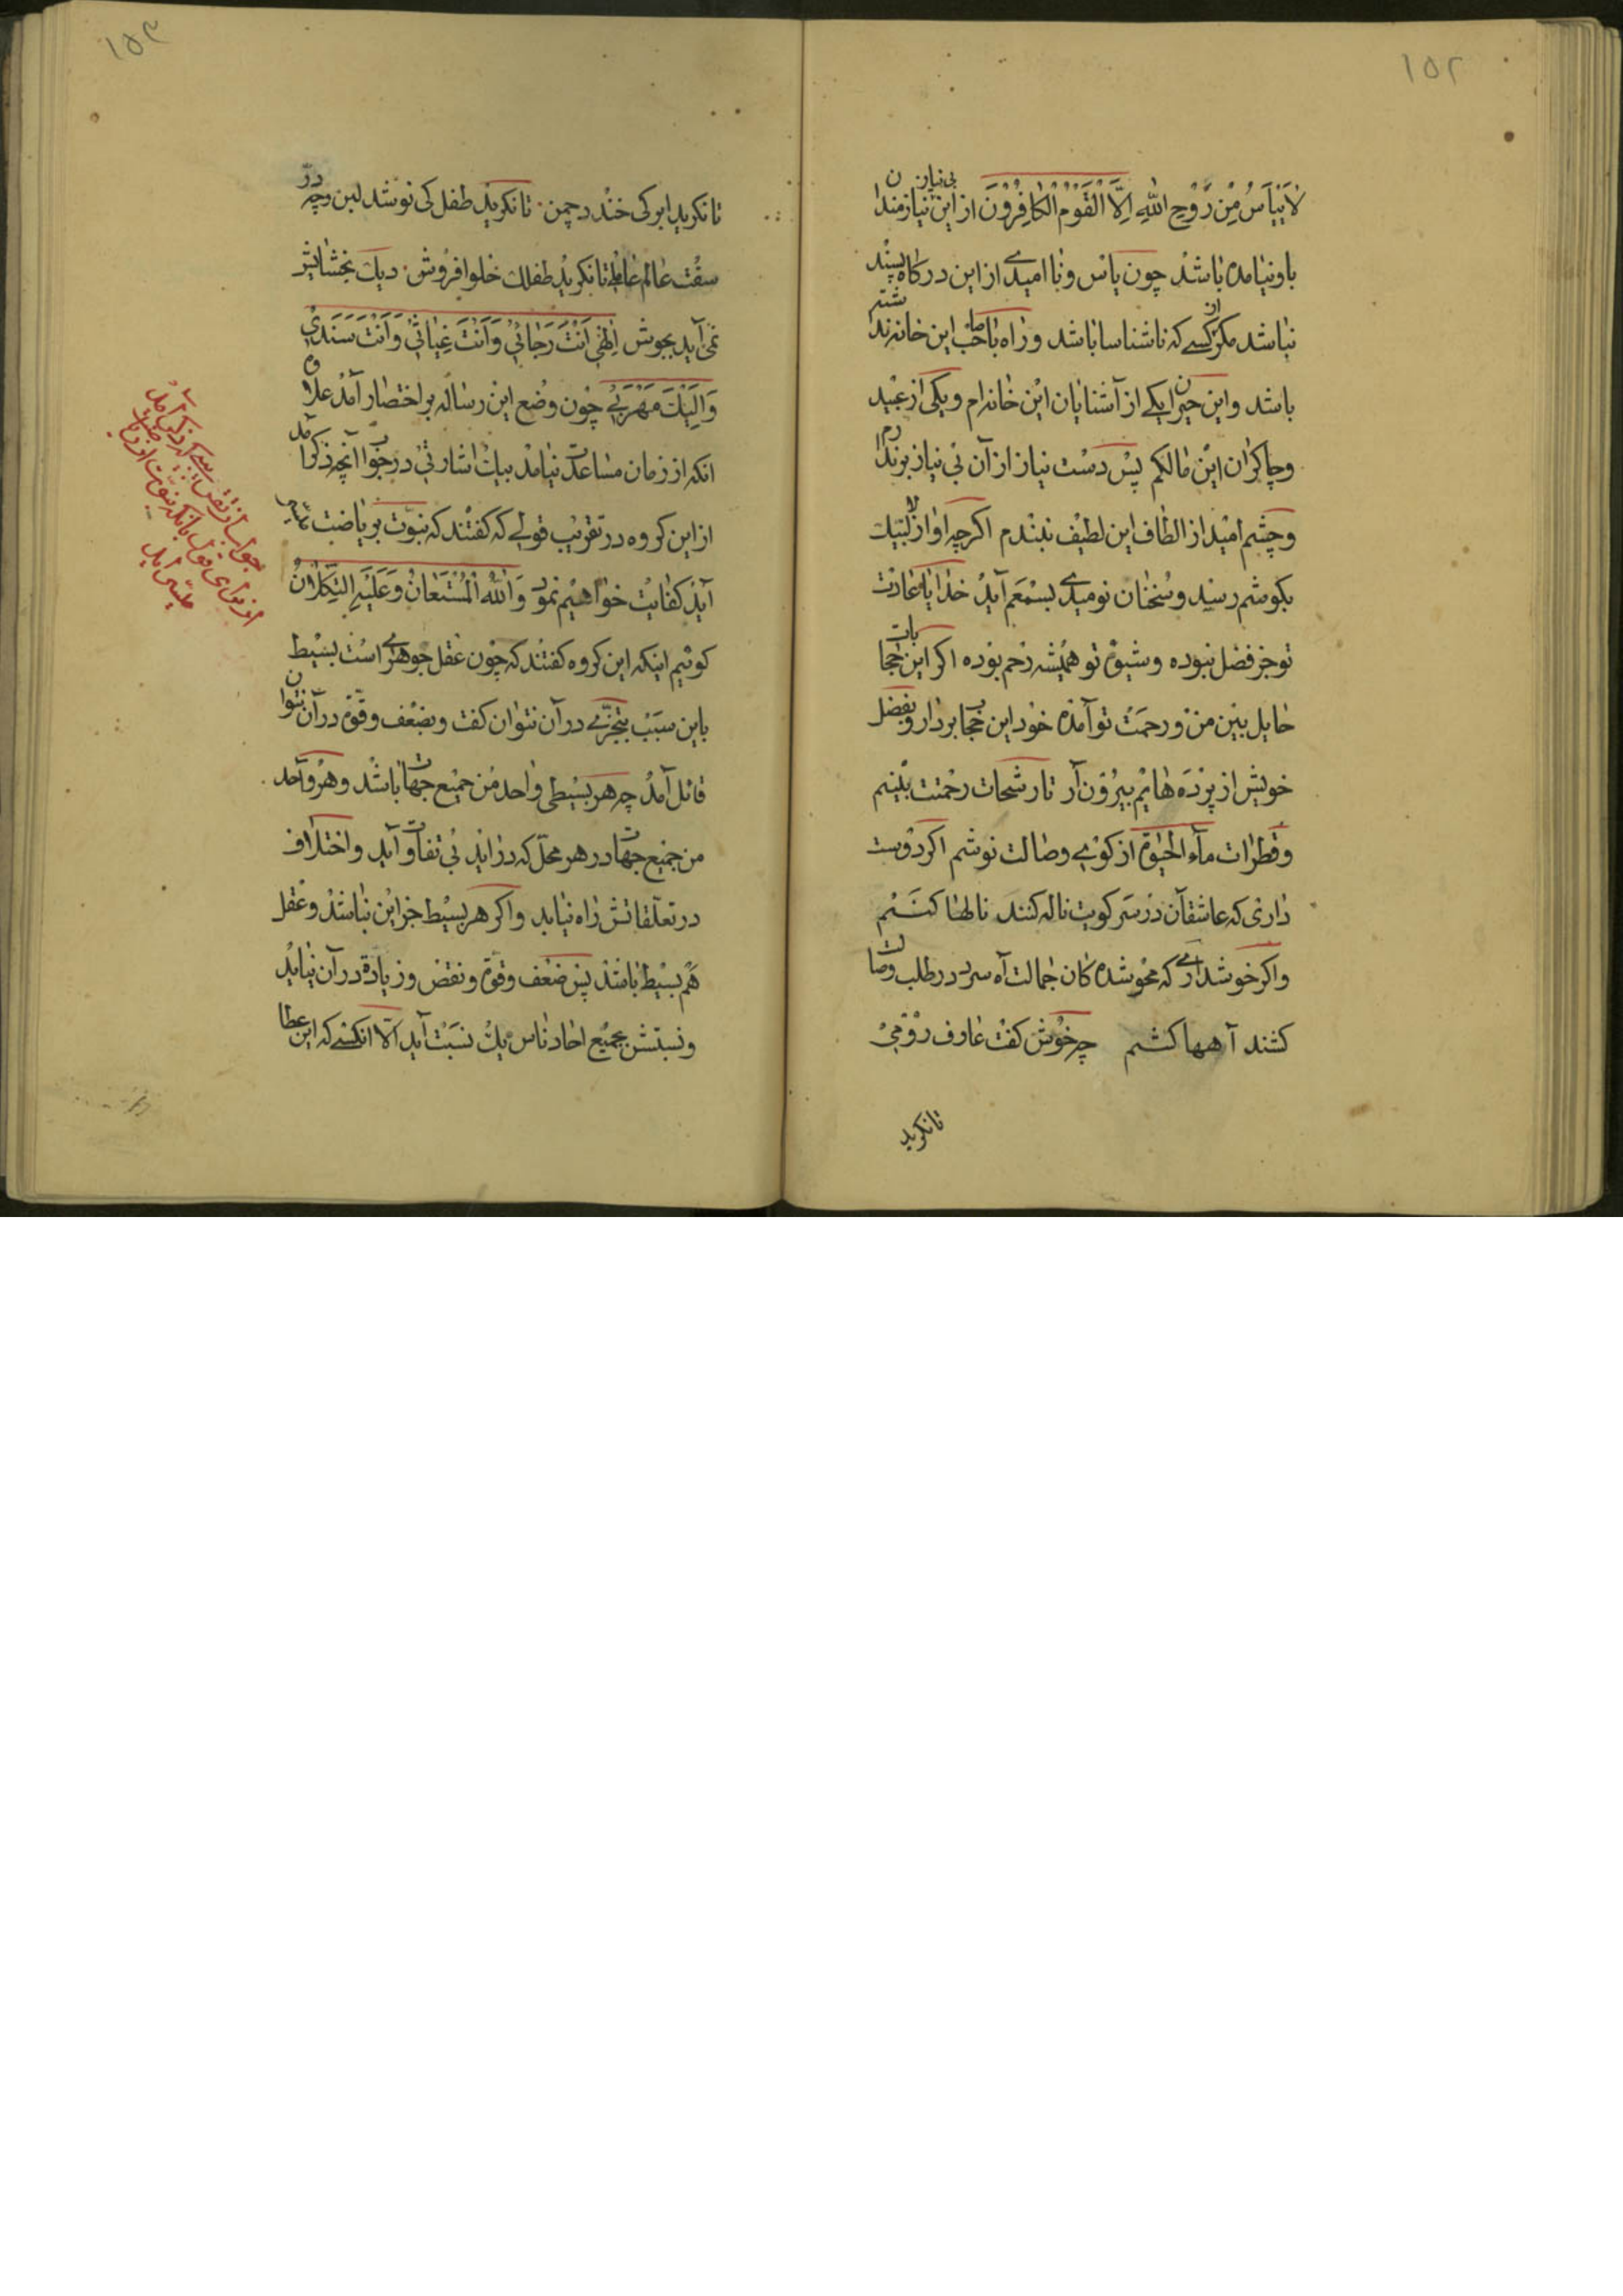 ١٥٢
لَا يَيْأَسُ مِنْ رَوْحِ اللّٰهِ اِلَّا الْقَوْمُ الْكَافِرُوْنَ از این بی نیاز نیازمندان
باو نیامده باشد چون یاس و نا امیدی از این درکاه پسند
نباشد مکر از کسی که ناشناسا باشد و راه با صاحب این خانه نداشته
باشد و این حیران یکی از آشنایان این خانه‌ام و یکی از عبید
و چاکران این مالکم پس دست نیاز از آن بی نیاز برندارم
و چشم امید از الطاف این لطیف نبندم اکرچه اواز لا لبّیک
بکوشم رسید و سخنان نومیدی بسمعم آید خدایا عادت
تو جز فضل نبوده و شیوهٔ تو همیشه رحم بوده اکر این حجابات
حایل بین من و رحمت تو آمده خود این حجاب بردار و بفضل
خویش از پرده هایم بیرون آر تا رشحات رحمتت بینیم
و قطرات ماء الحیوة از کوی وصالت نوشم اکر دوست
داری که عاشقان در سر کویت ناله کنند نالها کنم
و اکر خوش داری که محو شده کان جمالت آه سرد در طلب وصالت
کشند آهها کشم چه خوش کفت عارف رومی
تا نکرید
١٥٣
تا نکرید ابر کی خندد چمن تا نکرید طفل کی نوشد لبن و چه درّ
سفت عالم عامل تا نکرید طفلک حلوا فروش دیک بخشایش
نمی آید بجوش اِلٰهِي اَنْتَ رَجَائِيْ وَاَنْتَ غِيَاثِيْ وَاَنْتَ سَنَدِيْ
وَاِلَيْكَ مَهْرَبِيْ چون وضع این رساله بر اختصار آمد علاوه
انکه از زمان مساعدت نیامد بیک اشارتی در جواب آنچه ذکر آمد
از این کروه در تقریب قولی که کفتند که نبوّت بریاضت
آید کفایت خواهیم نمود وَاللّٰهُ الْمُسْتَعَانُ وَعَلَيْهِ التِّكْلَانُ
کوئیم اینکه این کروه کفتند که چون عقل جوهری است بسیط
باین سبب تجزّی در آن نتوان کفت و بضعف و قوّة در آن نتوان
قائل آمد چه هر بسیطی واحد من جمیع جهات باشد و هر واحد
من جمیع جهات در هر محلّ که درآید بی تفاوت آید و اختلاف
در تعلّقاتش راه نیابد و اکر هر بسیط جز این نباشد و عقل
هم بسیط باشد پس ضعف و قوّة و نقض و زیادة در آن نیاید
و نسبتش بجمیع احاد ناس یک نسبت آید الّا انکسی که این عطا